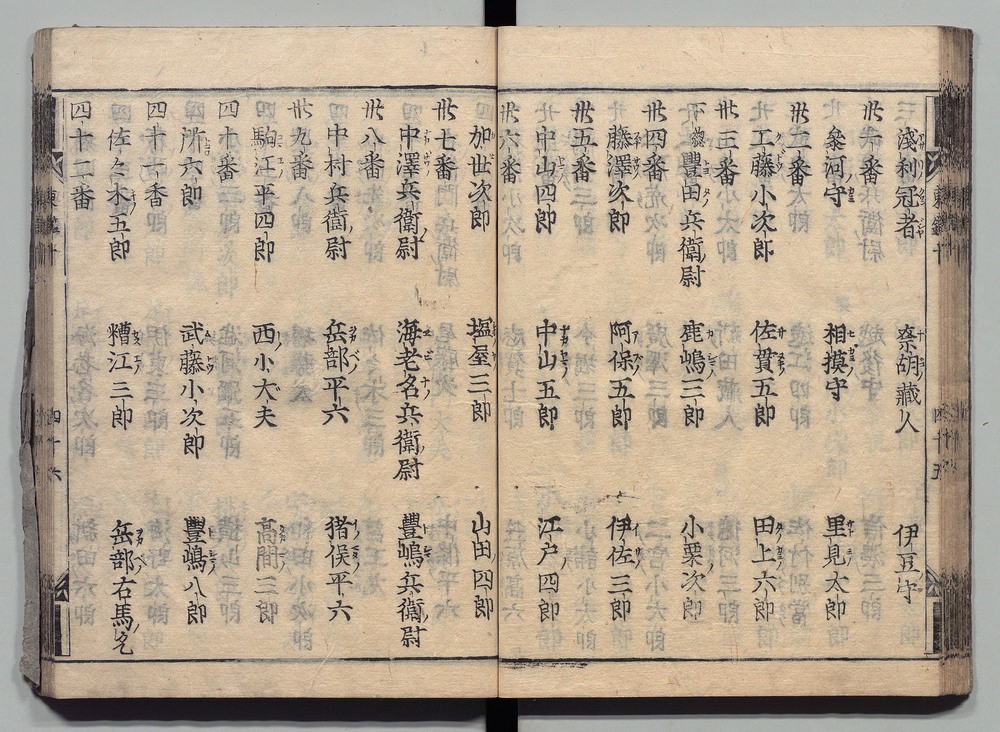 淺利冠者 奈胡藏人 伊豆守
卅一番
參河守 相摸守 里見太郎
卅二番
工藤小次郎 佐貫五郎 田上六郎
卅三番
下総豐田兵衞尉 鹿嶋三郎 小栗次郎
卅四番
藤澤次郎 阿保五郎 伊佐三郎
卅五番
中山四郎 中山五郎 江戸四郎
卅六番
加世次郎 塩屋三郎 山田四郎
卅七番
中澤兵衞尉 海老名兵衞尉 豐嶋兵衞尉
卅八番
中村兵衞尉 岳部平六 猪俣平六
卅九番
駒江平四郎 西小大夫 高間三郎
四十番
所六郎 武藤小次郎 豐嶋八郎
四十一番
佐々木五郎 糟江三郎 岳部右馬允
四十二番
東鑑十 四十五
東鑑十 四十六